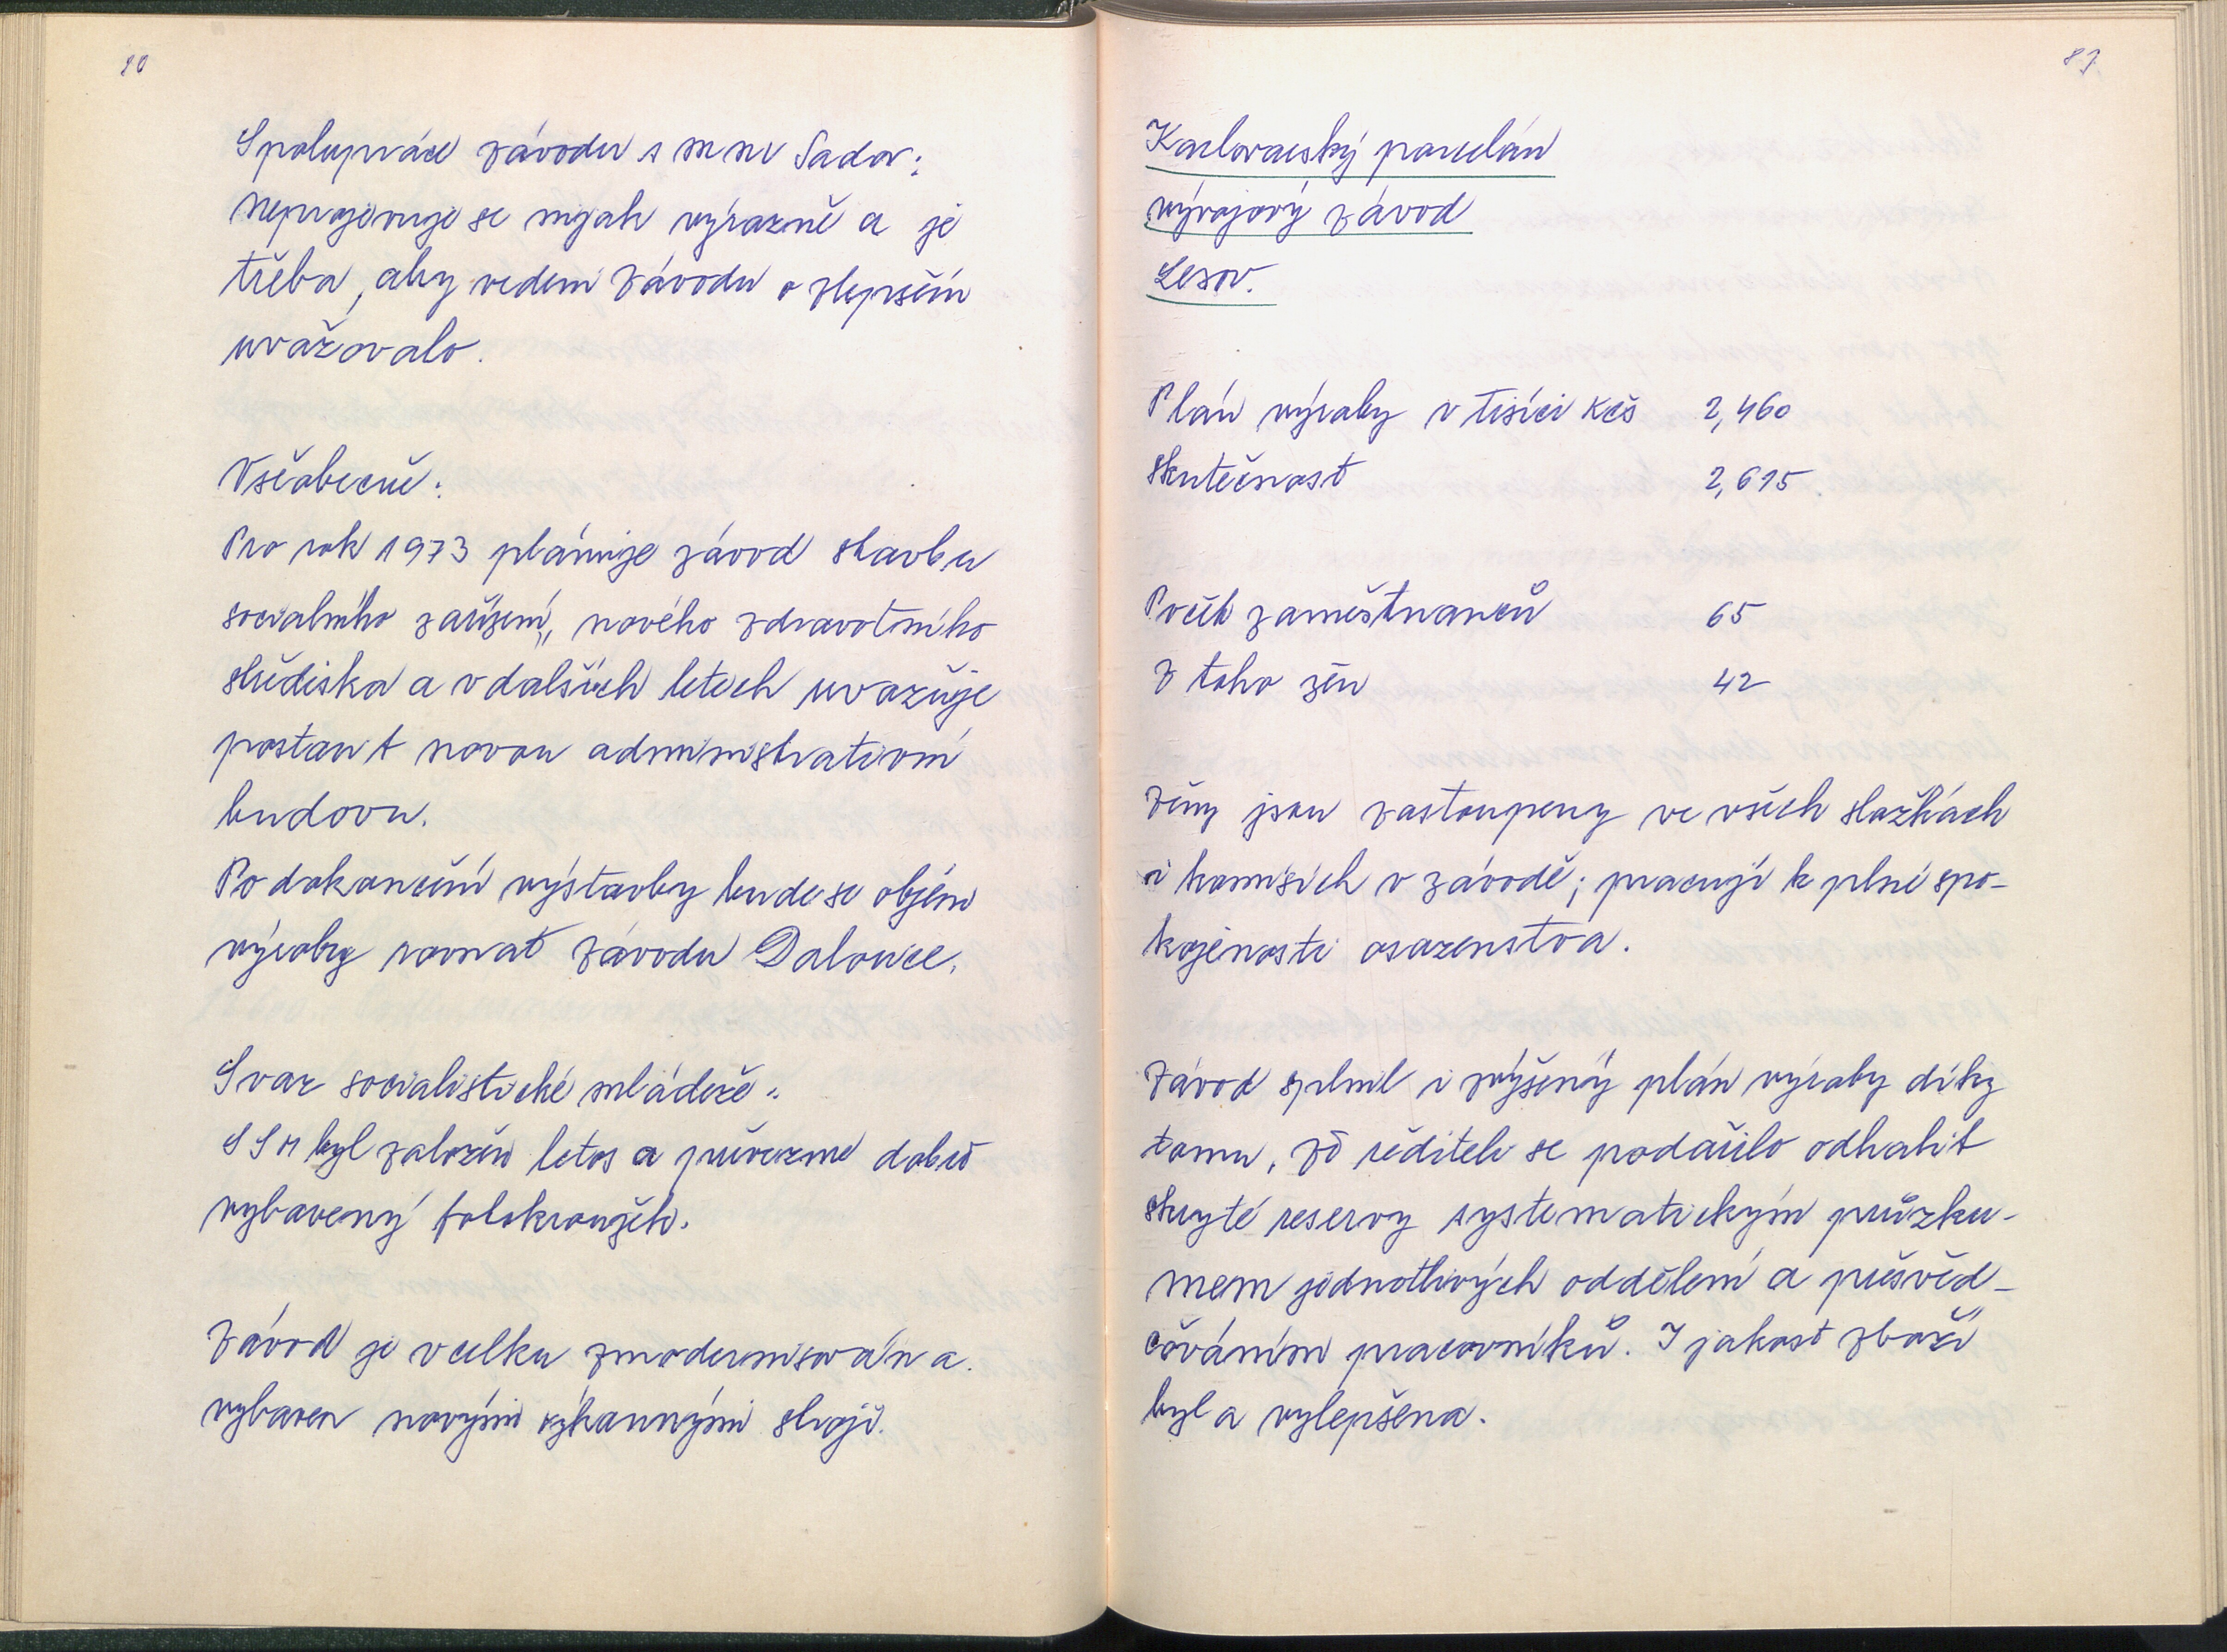 80
Spolupráce závodu s MNV Sadov:
neprojevuje se nijak výrazně a je
třeba, aby vedení závodu o zlepšení
uvažovalo.
Všeobecně:
Pro rok 1973 plánuje závod stavbu
socialního zařízení, nového zdravotního
střediska a v dalších letech uvažuje
postavit novou administrativní
budovu.
Po dokončení výstavby bude se objem
výroby rovnat závodu Dalovice.
Svaz socialistické mládeže:
SSM byl založen letos a převezme dobře
vybavený fotokroužek.
Závod je vcelku zmodernisován a
vybaven novými výkonnými stroji.
81
Karlovarský porcelán
vývojový závod
Lesov.
Plán výroby v tisíci Kčs 2,460
skutečnost 2,615
Počet zaměstnanců 65
z toho žen 42
Ženy jsou zastoupeny ve všech složkách
i komisích v závodě; pracují k plné spo-
kojenosti osazenstva.
Závod splnil i zvýšený plán výroby díky
tomu, že řediteli se podařilo odhalit
skryté reservy systematickým průzku-
mem jednotlivých oddělení a přesvěd-
čováním pracovníků. I jakost zboží
byla vylepšena.